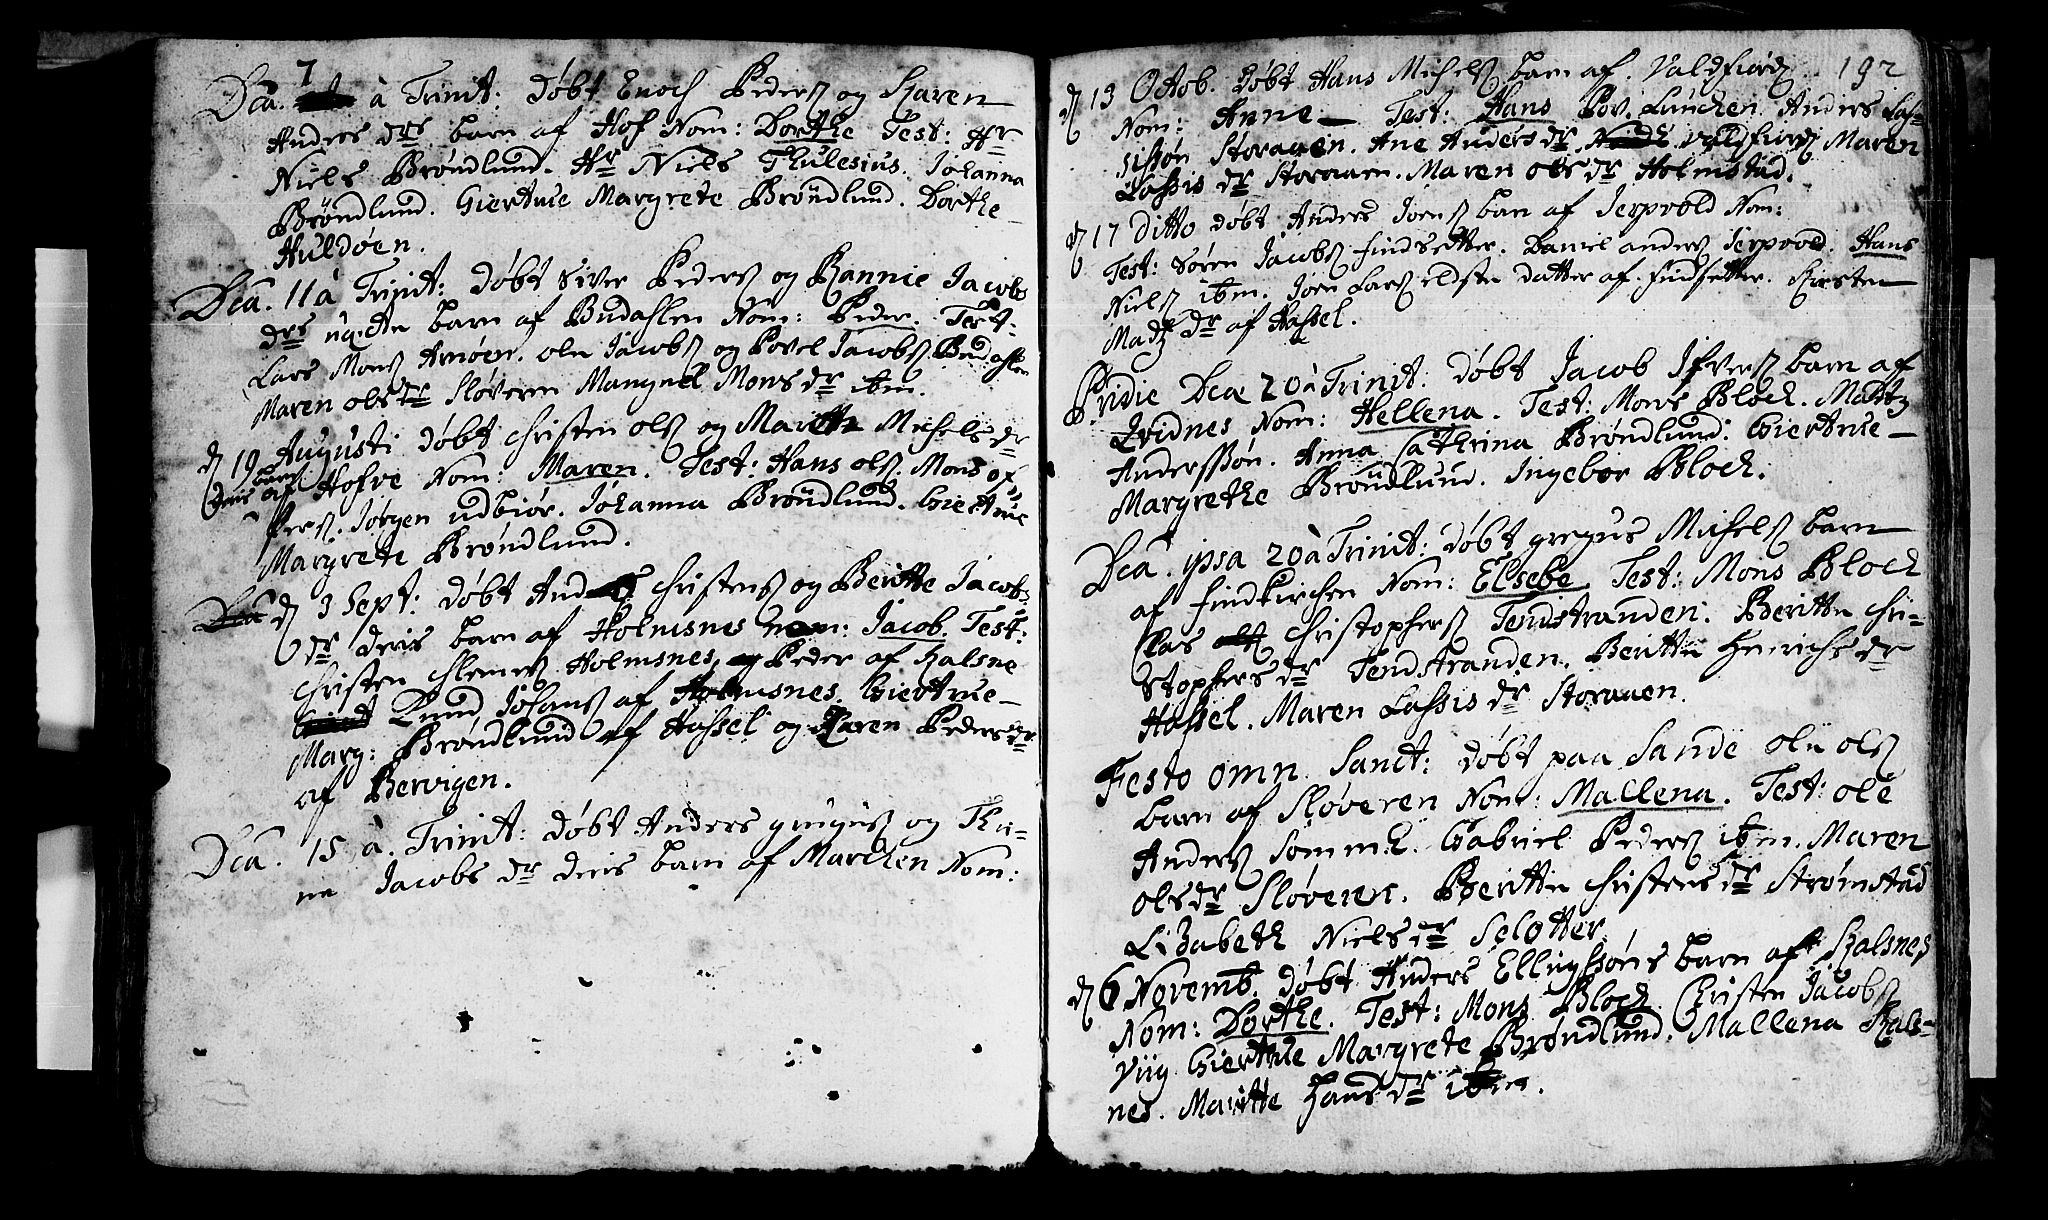 7
Dca. à Trinit: Døbt Enoch Peders og Karen
Anders drs barn af Hof Nom: Dorthe Test: Hr
Niels Brøndlund. Hr Niels Thulesius. Johanna
Brøndlund. Giertrue Margrete Brøndlund. Dorthe
Huldøen.
Dca. 11 à Trinit: Døbt Siver Peders og Rannie Jacobs
drs uægte barn af Budahlen Nom: Peder. Test:
Lars Mons Arnøen. ole Jacobs og Povel Jacobs Budahlen
Maren ols dr Sløveren Mangnel Mons dr ibm.
d 19 Augusti Døbt Christen ols og Maritte Michels dr
deris barn af Hofve Nom: Maren. Test: Hans ols. Mons of
Pers. Jørgen udbiør. Johanna Brøndlund. Giertrue
Margrete Brøndlund.
d 3 Sept: Døbt And Christens og Beritte Jacobs
dr deris barn af Holmsnes nom: Jacob. Test:
Christen Clemes Holmsnes, Peder af Kalsne
Lund Johans af Holmsnes Giertrue
Marg: Brøndlund af Hassel og Karen Peders dr
af Bervigen.
Dca. 15 à. Trinit: Døbt Anders gregus og Thri-
ne Jacobs dr deris barn af Marchen Nom:
192
d 13 Octob. Døbt Hans Michels barn af. Valdfiord
Nom: Anne Test: Hans Pov. Lunchen. Anders Las-
sissøn Storauen. Ane Anders dr. Valdfiord Maren
Lassis dr Storauen. Maren ols dr Holmstad.
d 17 Ditto døbt Anders Joens barn af Jerpvold Nom:
Test: Søren Jacobs findsetter. Daniel anders Jerpvold. Hans
Niels ibm. Joen Lars eldste datter af findsetter. Kirsten
Madz dr af Hassel.
Pridie Dca 20 à Trinit: Døbt Jacob Ifvers barn af
Qvidnes Nom: Hellena. Test: Mons Bloch. Madtz
Anderssøn. Anna Cathrina Brøndlund. Giertrue
Margrethe Brøndlund. Ingebor Bloch.
Dca. ipsa 20 à Trinit: Døbt gregus Michels barn
af findkirchen Nom: Elsebe Test: Mons Bloch
Clas Christophers Tendstranden. Beritte Chri-
stophers dr Tendstranden. Beritte Henrichs dr
Hassel. Maren Lassis dr Storauen.
Festo omn. Sanct: døbt paa Sande ole ols
barn af Sløveren Nom: Mallena. Test: ole
Anders Somml. Gabriel Peders ibm. Maren
ols dr Sløveren. Beritte Christens dr Strømstad
Lizabeth Niels dr Selotter.
d 6 Novemb. Døbt Anders Ellingssøns barn af Kalsnes
Nom: Dorthe. Test: Mons Bloch Christen Jacobs
Viig Giertrue Margrete Brøndlund. Mallena Kals-
nes. Maritte Hans dr ibm.